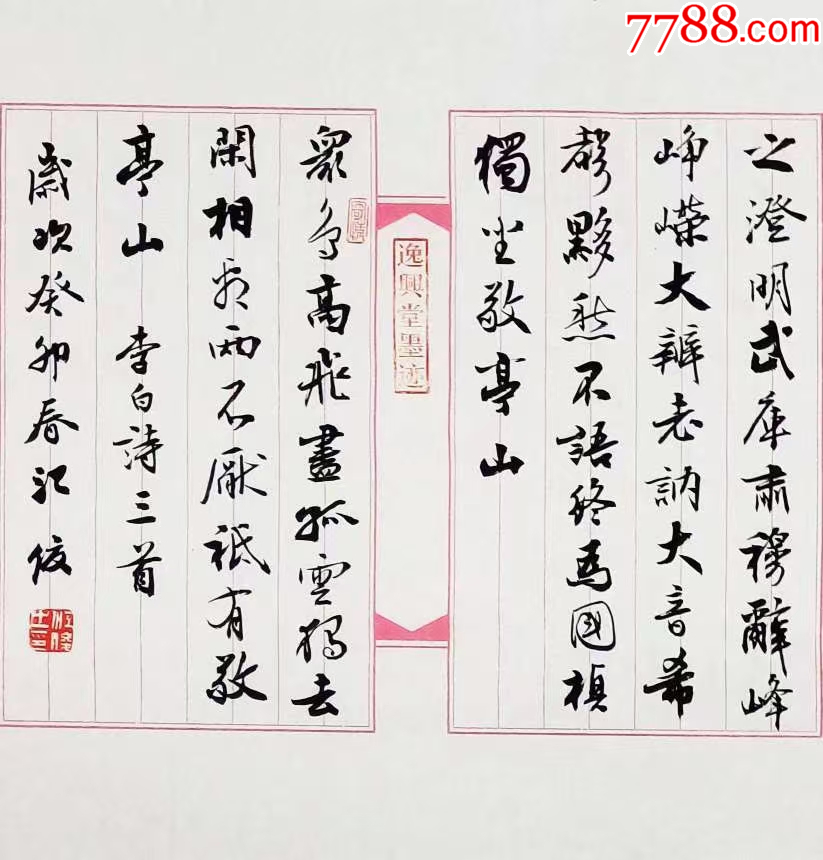 7788.com
之澄明武庫肅穆辭峰
崢嶸大辯若訥大音希
聲默然不語終為國楨
獨坐敬亭山
逸興堂墨迹
眾鳥高飛盡孤雲獨去
閑相看兩不厭祇有敬
亭山 李白詩三首
歲次癸卯春